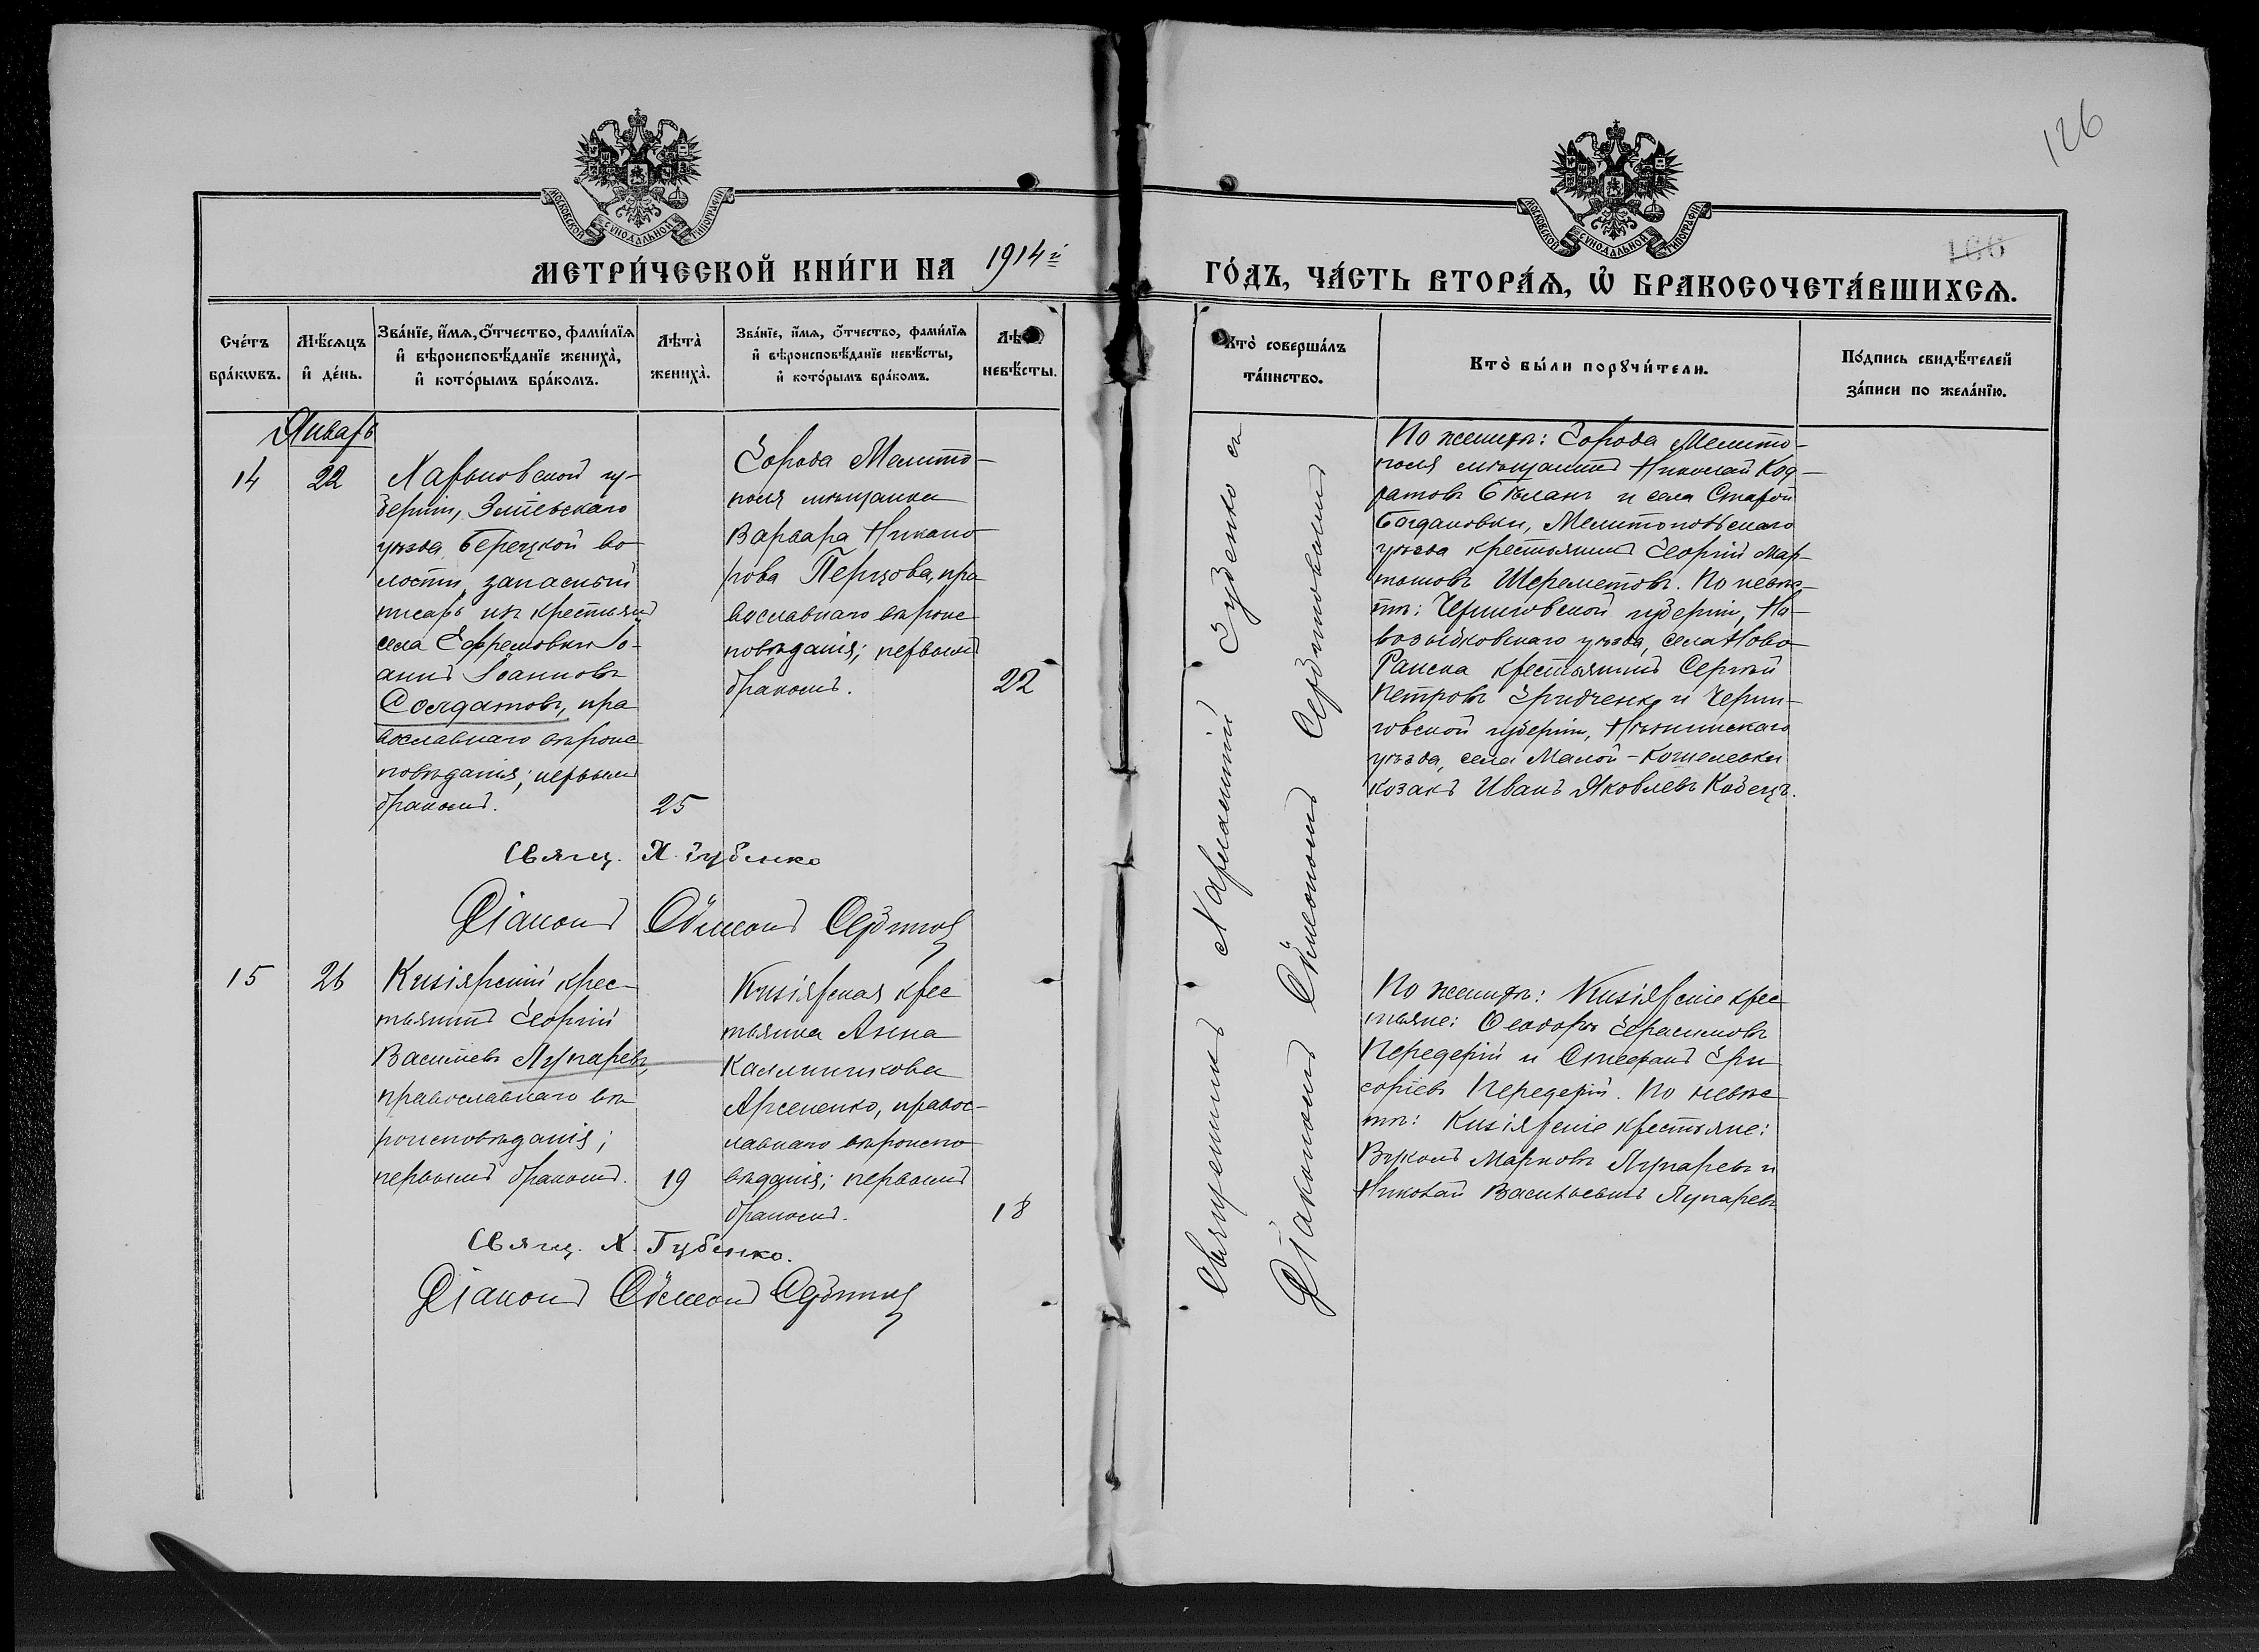 126
МОСКОВСКОЙ СѴНОДАЛЬНОЙ ТИПОГРАФІИ
МОСКОВСКОЙ СѴНОДАЛЬНОЙ ТИПОГРАФІИ
166
МЕТРИ́ЧЕСКОЙ КНИ́ГИ НА 1914й
ГО́ДЪ, ЧА́СТЬ ВТОРА́Ѧ, Ѡ҆ БРАКОСОЧЕТА́ВШИХСѦ.
Сче́тъ
бра́кѡвъ.
Мѣ́сѧцъ
и҆ де́нь.
Зва́нїе, и҆́мѧ, ѻ҆́тчество, фами́лїѧ
и҆ вѣроисповѣ́данїе жениха̀,
и҆ кото́рымъ бра́комъ.
Лѣта̀
жениха̀.
Зва́нїе, и҆́мѧ, ѻ҆́тчество, фами́лїѧ
и҆ вѣроисповѣ́данїе невѣ́сты,
и҆ кото́рымъ бра́комъ.
невѣ́сты.
Кто̀ соверша́лъ
та́инство.
Кто̀ бы́ли порꙋчи́тели.
По́дпись свидѣ́телей
за́писи по жела́нїю.
Январь
14
22
Харьковской гу-
берніи, Зміевскаго
уѣзда Берецкой во-
лости, запасный
писарь изъ крестьянъ
села Ефремовки Іо-
аннъ Іоанновъ
Солдатовъ, пра
вославнаго вѣроис
повѣданія; первымъ
бракомъ.
25
Города Мелито-
поля мѣщанка
Варвара Никано-
рова Перцова, пра
вославнаго вѣроис
повѣданія; первымъ
бракомъ.
22
Священникъ Харлампій Губенко съ
Діакономъ Сѵмеономъ Сербиновымъ
По женихѣ: Города Мелито-
поля мѣщанинъ Николай Код-
ратовъ Бѣланъ и села Старой
Богдановки, Мелитопольскаго
уѣзда крестьянинъ Георгій Мар-
тыновъ Шереметовъ. По невѣс-
тѣ: Черниговской губерніи, Но-
возыбковскаго уѣзда, села Ново
Ранска крестьянинъ Сергѣй
Петровъ Гридченко и Черни-
говской губерніи, Нѣжинскаго
уѣзда, села Малой-Кошелевки
козакъ Иванъ Яковлевъ Кобецъ.
Свящ. Х. Губенко
Діаконъ Сѵмеонъ Сербиновъ
15
26
Кизіярскій крес-
тьянинъ Георгій
Васильевъ Лупаревъ,
православнаго вѣ-
роисповѣданія;
первымъ бракомъ.
19
Кизіярская крес
тьянка Анна
Каллиникова
Арсененко, правос-
лавнаго вѣроиспо
вѣданія; первымъ
бракомъ.
18
По женихѣ: Кизіярскіе крес
тьяне: Ѳеодоръ Герасимовъ
Передерій и Стефанъ Гри
горіевъ Передерій. По невѣс
тѣ: Кизіярскіе крестьяне:
Вуколъ Марковъ Лупаревъ и
Николай Васильевичъ Лупаревъ
Свящ. Х. Губенко.
Діаконъ Сѵмеонъ Сербиновъ